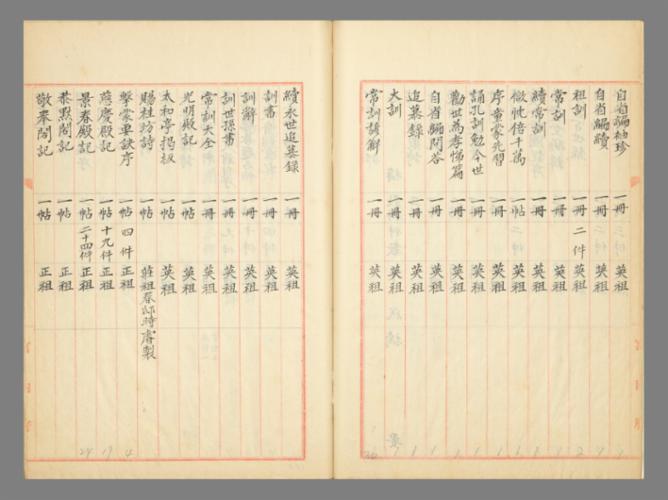 自省編袖珍 一冊 英祖
自省編續 一冊 英祖
祖訓 一冊 二件 英祖
常訓 一冊 英祖
續常訓 一冊 英祖
慟忱倍千萬 一帖 英祖
序童蒙先習 一冊 英祖
誦孔訓勉今世 一冊 英祖
勸世爲孝悌篇 一冊 英祖
自省編問答 一冊 英祖
追慕錄 一冊 英祖
大訓 一冊 英祖
常訓諺解 一冊 英祖
續永世追慕錄 一冊 英祖
訓書 一冊 英祖
訓辭 一冊 英祖
訓世孫書 一冊 英祖
常訓大全 一冊 英祖
光明殿記 一帖 英祖
太和亭揭板 一帖 英祖
賜桂坊詩 一帖 莊祖春邸時睿製
擊蒙要訣序 一帖 四件 正祖
慶殿記 一帖 十九件 正祖
景春殿記 一帖 二十四件 正祖
恭默閤記 一帖 正祖
敬奉閣記 一帖 正祖